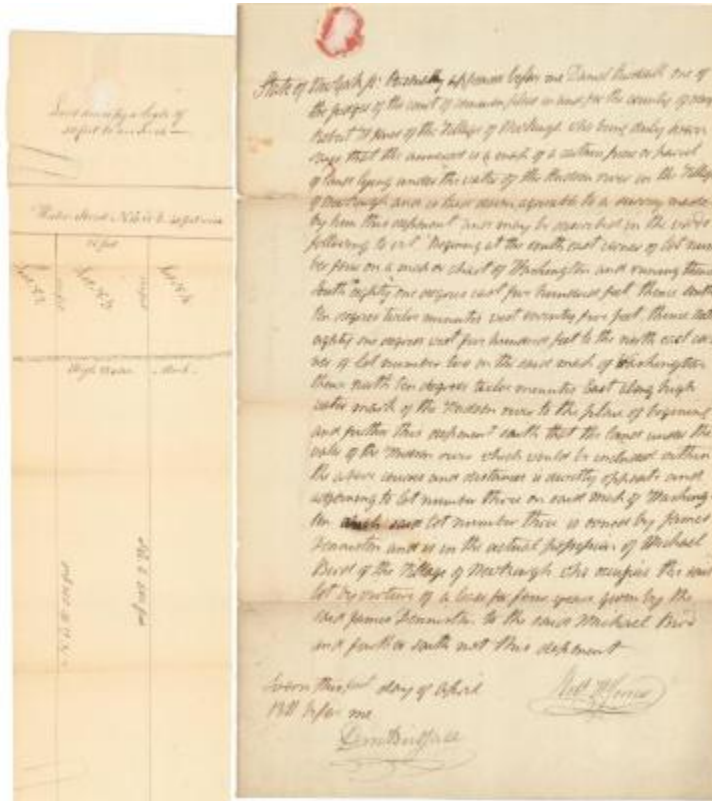 Laid down by a scale of
50 feet to an inch
Water Street
75 feet
Lot No 2
Lot No 3
Lot No 4
High Water Mark
State of New York ss Personally appeared before me Daniel Birdsall one of
the judges of the court of common pleas in and for the county of
Robert of the Village of Newburgh who being duly sworn
says that the annexed is a map of a certain piece or parcel
of land lying under the water of the Hudson river in the Village
of Newburgh and is laid down agreeable to a survey made
by him this deponent and may be described in the words
following to wit Begining at the south east corner of lot num
ber four on a map or chart of Washington and runing thence
South eighty one degrees east five hundred feet thence south
ten degrees twelve minutes west seventy five feet thence
eighty one degrees west five hundred feet to the north east cor
ner of lot number two on the said map of Washington
thence north ten degrees twelve minutes East along high
water mark of the Hudson river to the place of begining
and further this deponent saith that the land under the
water of the Hudson river which would be included within
the above courses and distances is directly opposite and
adjoining to lot number three on said map of Washing
ton which said lot number three is owned by James
Denniston and is in the actual possession of Michael
Bird of the Village of Newburgh who occupies the said
lot by virtue of a lease for four years given by the
said James Denniston to the said Michael Bird
and further saith not this deponent
Sworn this day of April
before me